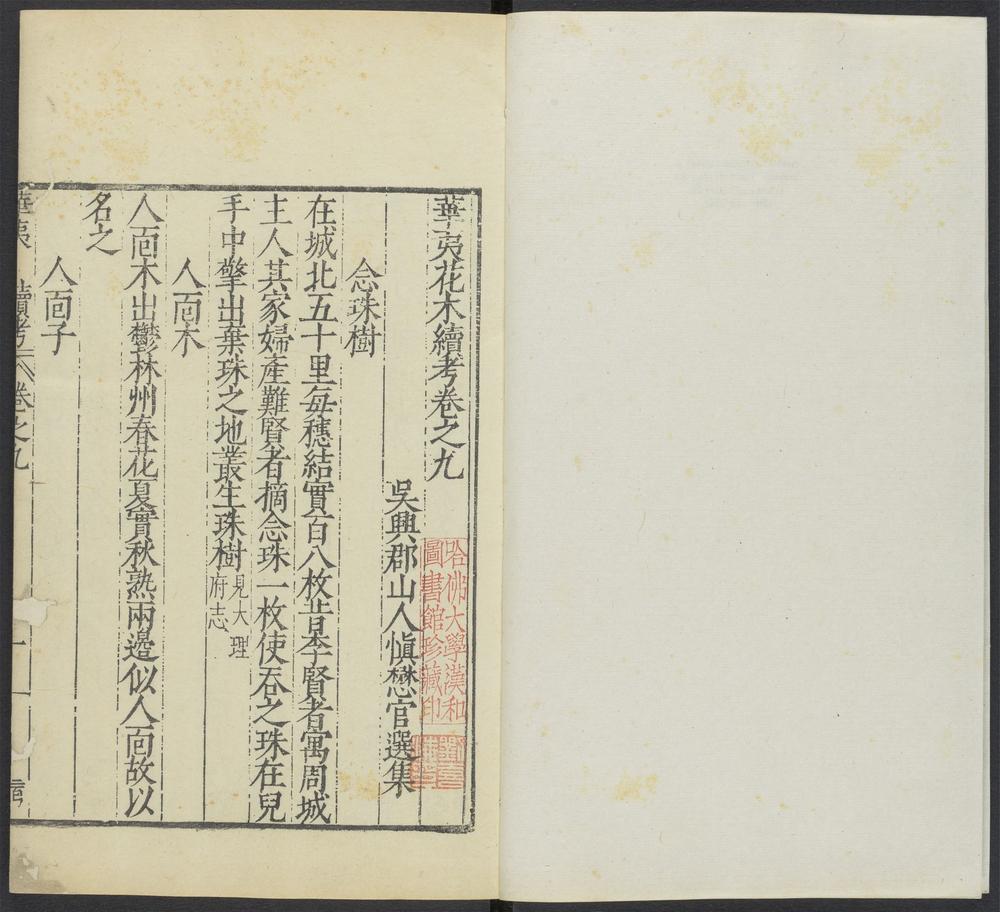 華夷花木續考卷之九
吳興郡山人愼懋官選集
念珠樹
在城北五十里每穗結實百八枚昔李賢者寓周城
主人其家婦產難賢者摘念珠一枚使吞之珠在兒
手中擎出棄珠之地叢生珠樹見大理府志
人靣木
人靣木出鬱林州春花夏實秋熟兩邉似人靣故以
名之
人靣子
華夷 續考 卷之九
哈佛大學漢和
圖書館珍藏印